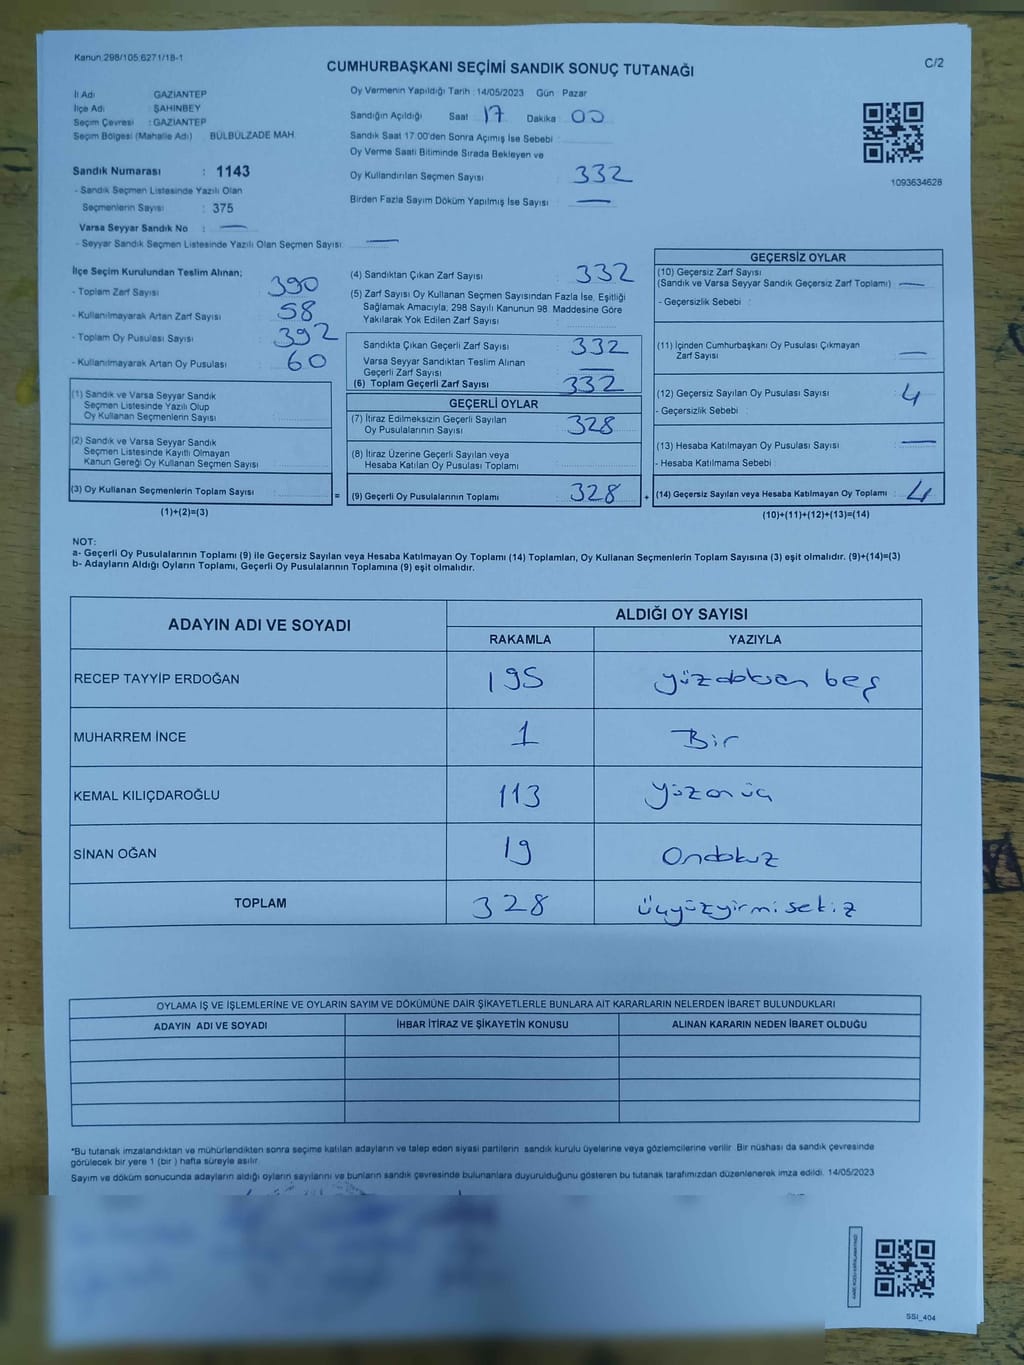 Kanun:298/105;6271/18-1
CUMHURBAŞKANI SEÇİMİ SANDIK SONUÇ TUTANAĞI
C/2
İl Adı GAZİANTEP
İlçe Adı : ŞAHİNBEY
Seçim Çevresi : GAZİANTEP
Seçim Bölgesi (Mahalle Adı) BÜLBÜLZADE MAH.
Sandık Numarası : 1143
- Sandık Seçmen Listesinde Yazılı Olan
Seçmenlerin Sayısı : 375
Varsa Seyyar Sandık No : —
- Seyyar Sandık Seçmen Listesinde Yazılı Olan Seçmen Sayısı: —
Oy Vermenin Yapıldığı Tarih : 14/05/2023 Gün : Pazar
Sandığın Açıldığı Saat 17 Dakika 00
Sandık Saat 17:00'den Sonra Açımış İse Sebebi
Oy Verme Saati Bitiminde Sırada Bekleyen ve
Oy Kullandırılan Seçmen Sayısı 332
Birden Fazla Sayım Döküm Yapılmış İse Sayısı —
1093634628
İlçe Seçim Kurulundan Teslim Alınan;
- Toplam Zarf Sayısı 390
- Kullanılmayarak Artan Zarf Sayısı 58
- Toplam Oy Pusulası Sayısı 392
- Kullanılmayarak Artan Oy Pusulası 60
(1) Sandık ve Varsa Seyyar Sandık
Seçmen Listesinde Yazılı Olup
Oy Kullanan Seçmenlerin Sayısı
(2) Sandık ve Varsa Seyyar Sandık
Seçmen Listesinde Kayıtlı Olmayan
Kanun Gereği Oy Kullanan Seçmen Sayısı
(3) Oy Kullanan Seçmenlerin Toplam Sayısı
(1)+(2)=(3)
(4) Sandıktan Çıkan Zarf Sayısı 332
(5) Zarf Sayısı Oy Kullanan Seçmen Sayısından Fazla İse, Eşitliği
Sağlamak Amacıyla, 298 Sayılı Kanunun 98. Maddesine Göre
Yakılarak Yok Edilen Zarf Sayısı
Sandıkta Çıkan Geçerli Zarf Sayısı 332
Varsa Seyyar Sandıktan Teslim Alınan
Geçerli Zarf Sayısı —
(6) Toplam Geçerli Zarf Sayısı 332
GEÇERLİ OYLAR
(7) İtiraz Edilmeksizin Geçerli Sayılan
Oy Pusulalarının Sayısı 328
(8) İtiraz Üzerine Geçerli Sayılan veya
Hesaba Katılan Oy Pusulası Toplamı
= (9) Geçerli Oy Pusulalarının Toplamı 328
GEÇERSİZ OYLAR
(10) Geçersiz Zarf Sayısı
(Sandık ve Varsa Seyyar Sandık Geçersiz Zarf Toplamı) —
- Geçersizlik Sebebi :
(11) İçinden Cumhurbaşkanı Oy Pusulası Çıkmayan
Zarf Sayısı —
(12) Geçersiz Sayılan Oy Pusulası Sayısı 4
- Geçersizlik Sebebi
(13) Hesaba Katılmayan Oy Pusulası Sayısı —
- Hesaba Katılmama Sebebi
+ (14) Geçersiz Sayılan veya Hesaba Katılmayan Oy Toplamı : 4
(10)+(11)+(12)+(13)=(14)
NOT:
a- Geçerli Oy Pusulalarının Toplamı (9) ile Geçersiz Sayılan veya Hesaba Katılmayan Oy Toplamı (14) Toplamları, Oy Kullanan Seçmenlerin Toplam Sayısına (3) eşit olmalıdır. (9)+(14)=(3)
b- Adayların Aldığı Oyların Toplamı, Geçerli Oy Pusulalarının Toplamına (9) eşit olmalıdır.
ADAYIN ADI VE SOYADI ALDIĞI OY SAYISI
RAKAMLA YAZIYLA
RECEP TAYYİP ERDOĞAN 195 yüzdoksan beş
MUHARREM İNCE 1 Bir
KEMAL KILIÇDAROĞLU 113 yüzonüç
SİNAN OĞAN 19 Ondokuz
TOPLAM 328 üçyüzyirmisekiz
OYLAMA İŞ VE İŞLEMLERİNE VE OYLARIN SAYIM VE DÖKÜMÜNE DAİR ŞİKAYETLERLE BUNLARA AİT KARARLARIN NELERDEN İBARET BULUNDUKLARI
ADAYIN ADI VE SOYADI İHBAR İTİRAZ VE ŞİKAYETİN KONUSU ALINAN KARARIN NEDEN İBARET OLDUĞU
*Bu tutanak imzalandıktan ve mühürlendikten sonra seçime katılan adayların ve talep eden siyasi partilerin sandık kurulu üyelerine veya gözlemcilerine verilir. Bir nüshası da sandık çevresinde
görülecek bir yere 1 (bir ) hafta süreyle asılır.
Sayım ve döküm sonucunda adayların aldığı oyların sayılarını ve bunların sandık çevresinde bulunanlara duyurulduğunu gösteren bu tutanak tarafımızdan düzenlenerek imza edildi. 14/05/2023
SSI_404